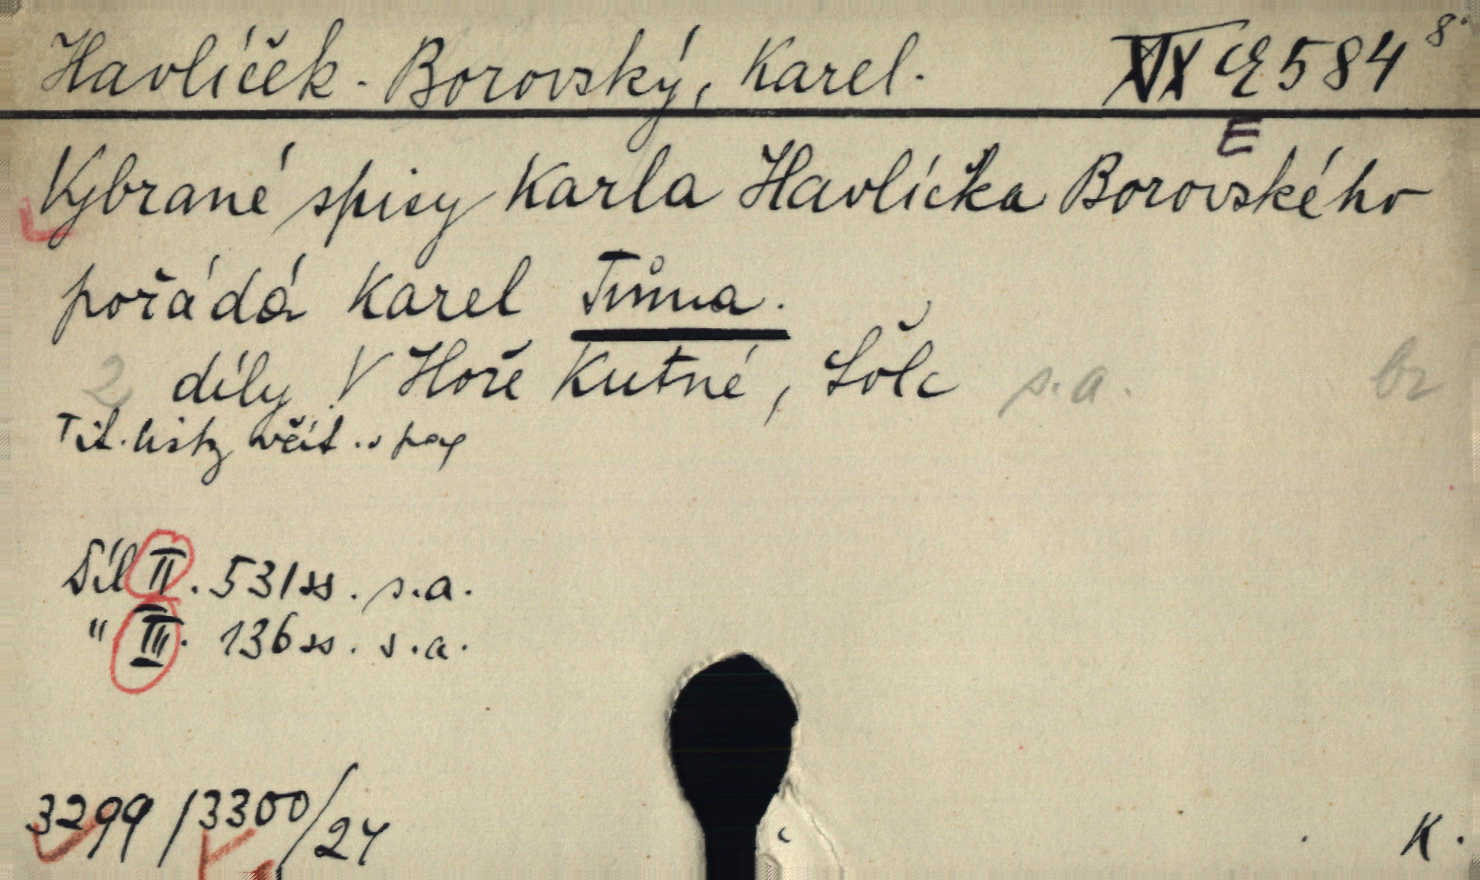 Havlíček-Borovský, Karel. XIX E 584 8°
E
Vybrané spisy Karla Havlíčka Borovského
pořádá Karel Tůma.
2 díly V Hoře Kutné, Šolc s.a. br
Tit. listy včít. v pag
Díl II. 531 ss. s.a.
" III. 136 ss. s.a.
3299/3300/24
K.